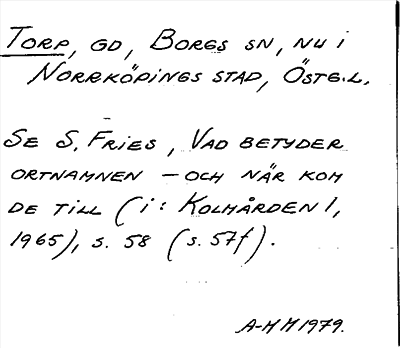 Torp, gd, Borgs sn, nu i
Norrköpings stad, Östg.l.
Se S. Fries, Vad betyder
ortnamnen – och när kom
de till (i: Kolmården 1,
1965), s. 58 (s. 57f).
A-M M 1979.